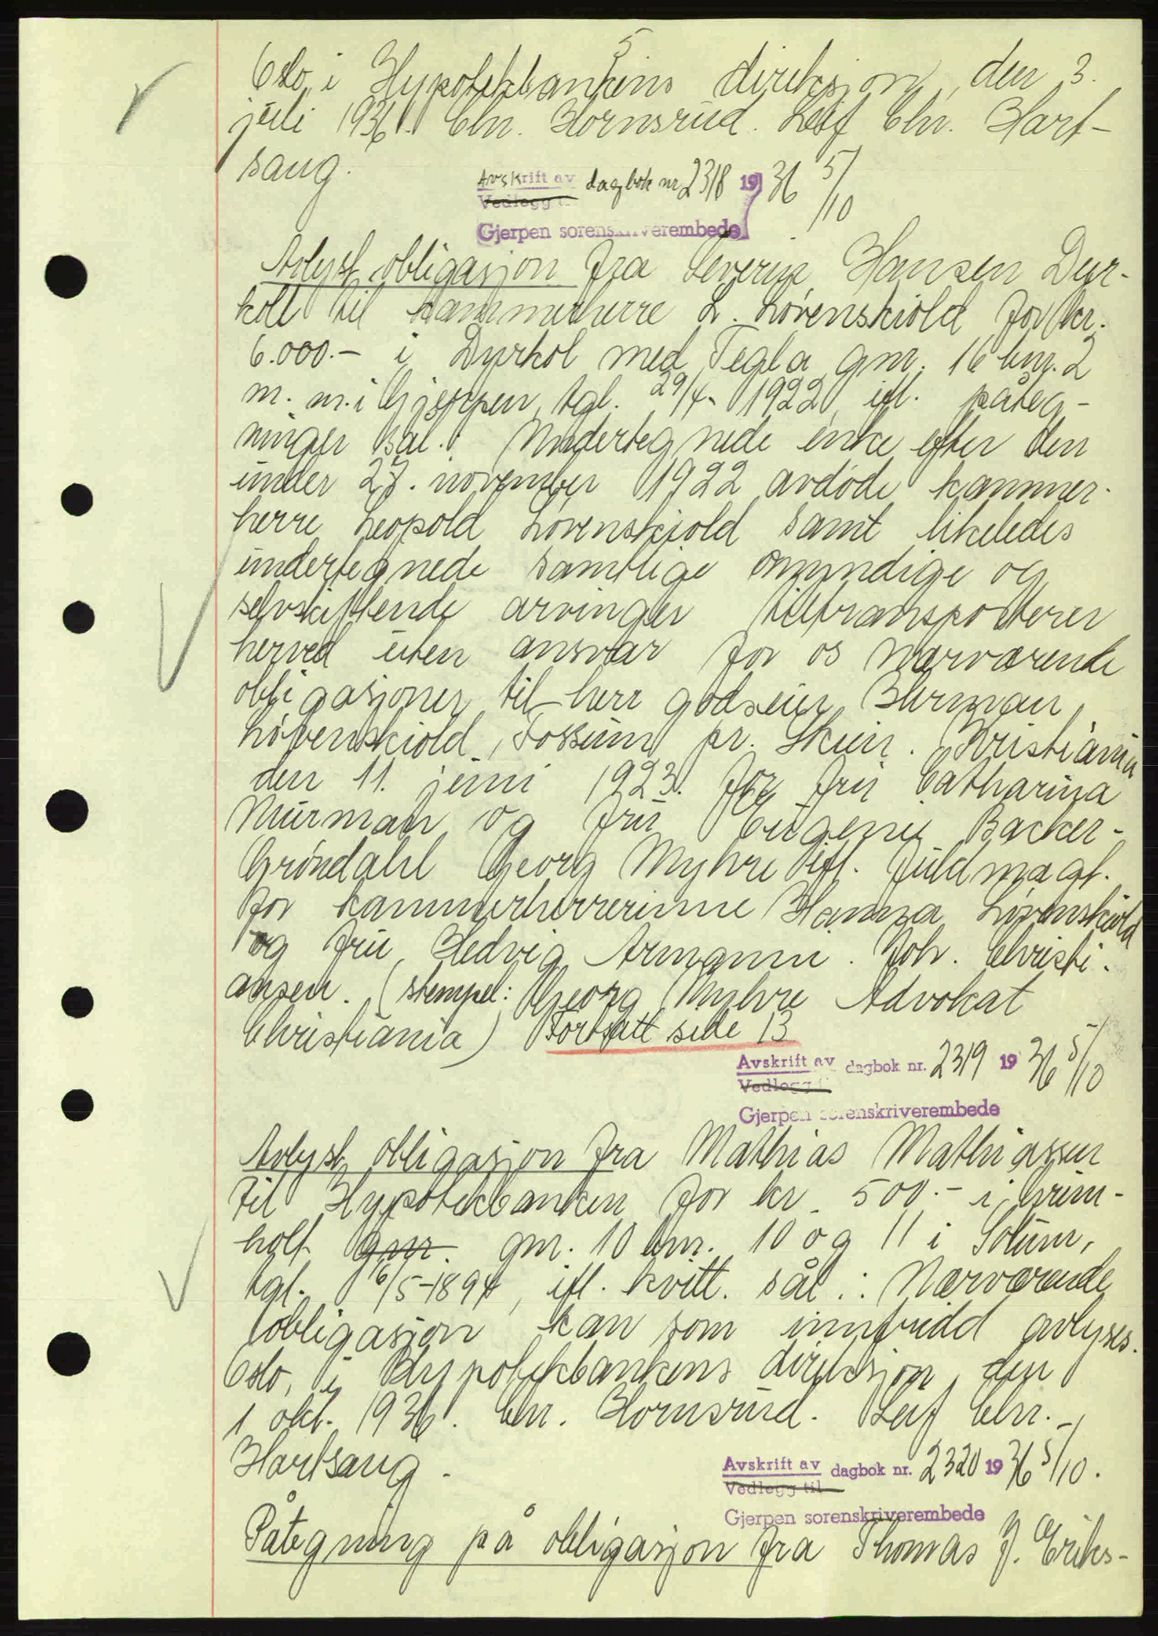 5
Oslo i Hypotekbankens direksjon, den 3.
juli 1936. Chr. Hornsrud. Leif Chr. Hart-
saug.
Avskrift av dagbok nr. 2318 1936 5/10
Vedlegg til
Gjerpen sorenskriverembede
Avlyst obligasjon fra Severin Hansen Dyr-
koll til kammerherre L. Løvenskiold for kr.
6.000.- i Dyrkol med Tegla gnr. 16 bnr. 2
m. m. i Gjerpen, tgl. 29/4- 1922, ifl. påteg-
ninger sål.: Undertegnede enke efter den
under 27. november 1922 avdøde kammer-
herre Leopold Løvenskiold samt likeledes
undertegnede samtlige myndige og
selvskiftende arvinger tiltransporterer
herved uten ansvar for os nærværende
obligasjoner til herr godseier Herman
Løvenskiold, Fossum pr. Skien. Kristiania
den 11. juni 1923. For fru Catharina
Mürmann og fru Eugenie Backer-
Grøndahl Georg Myhre ifl. fuldmagt.
For kammerherrerinne Hanna Løvenskiold
og fru Hedvig Armann. Joh. Christi-
ansen. (stempel: Georg Myhre Advokat
Christiania) Fortsatt side 13
Avskrift av dagbok nr. 2319 1936 5/10
Vedlegg til
Gjerpen sorenskriverembede
Avlyst obligasjon fra Mathias Mathiassen
til Hypotekbanken for kr. 500.- i Grim-
holt gnr. gnr. 10 bnr. 10 og 11 i Solum,
tgl. 16/5-1894, ifl. kvitt. sål.: Nærværende
obligasjon kan som innfridd avlyses.
Oslo, i Hypotekbankens direksjon, den
1. okt. 1936. Chr. Hornsrud. Leif Chr.
Hartsaug.
Avskrift av dagbok nr. 2320 1936 5/10.
Vedlegg til
Gjerpen sorenskriverembede
Påtegning på obligasjon fra Thomas J. Eriks-